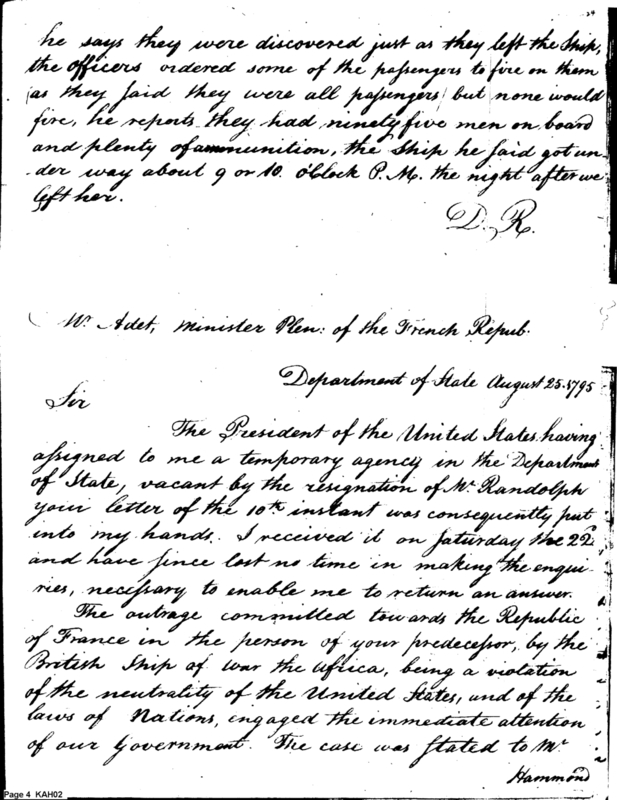 he says they were discovered just as they left the Ship,
the officers ordered some of the passengers to fire on them
as they said they were all passengers, but none would
fire, he reports they had ninety five men on board
and plenty of ammunition, the Ship he said got un-
-der way about 9 or 10. oClock P.M. the night after we
left her.
D. R.
Mr. Adet, Minister Plen: of the French Repub.
Department of State August 25. 1795
Sir
The President of the United States, having
assigned to me a temporary agency in the Department
of State, vacant by the resignation of Mr. Randolph
your letter of the 10th instant was consequently put
into my hands. I received it on Saturday the 22d
and have since lost no time in making the enqui-
ries, necessary to enable me to return an answer.
The outrage committed towards the Republic
of France in the person of your predecessor, by the
British Ship of War the Africa, being a violation
of the neutrality of the United States, and of the
laws of Nations, engaged the immediate attention
of our Government. The case was stated to Mr
Hammond
Page 4 KAH02